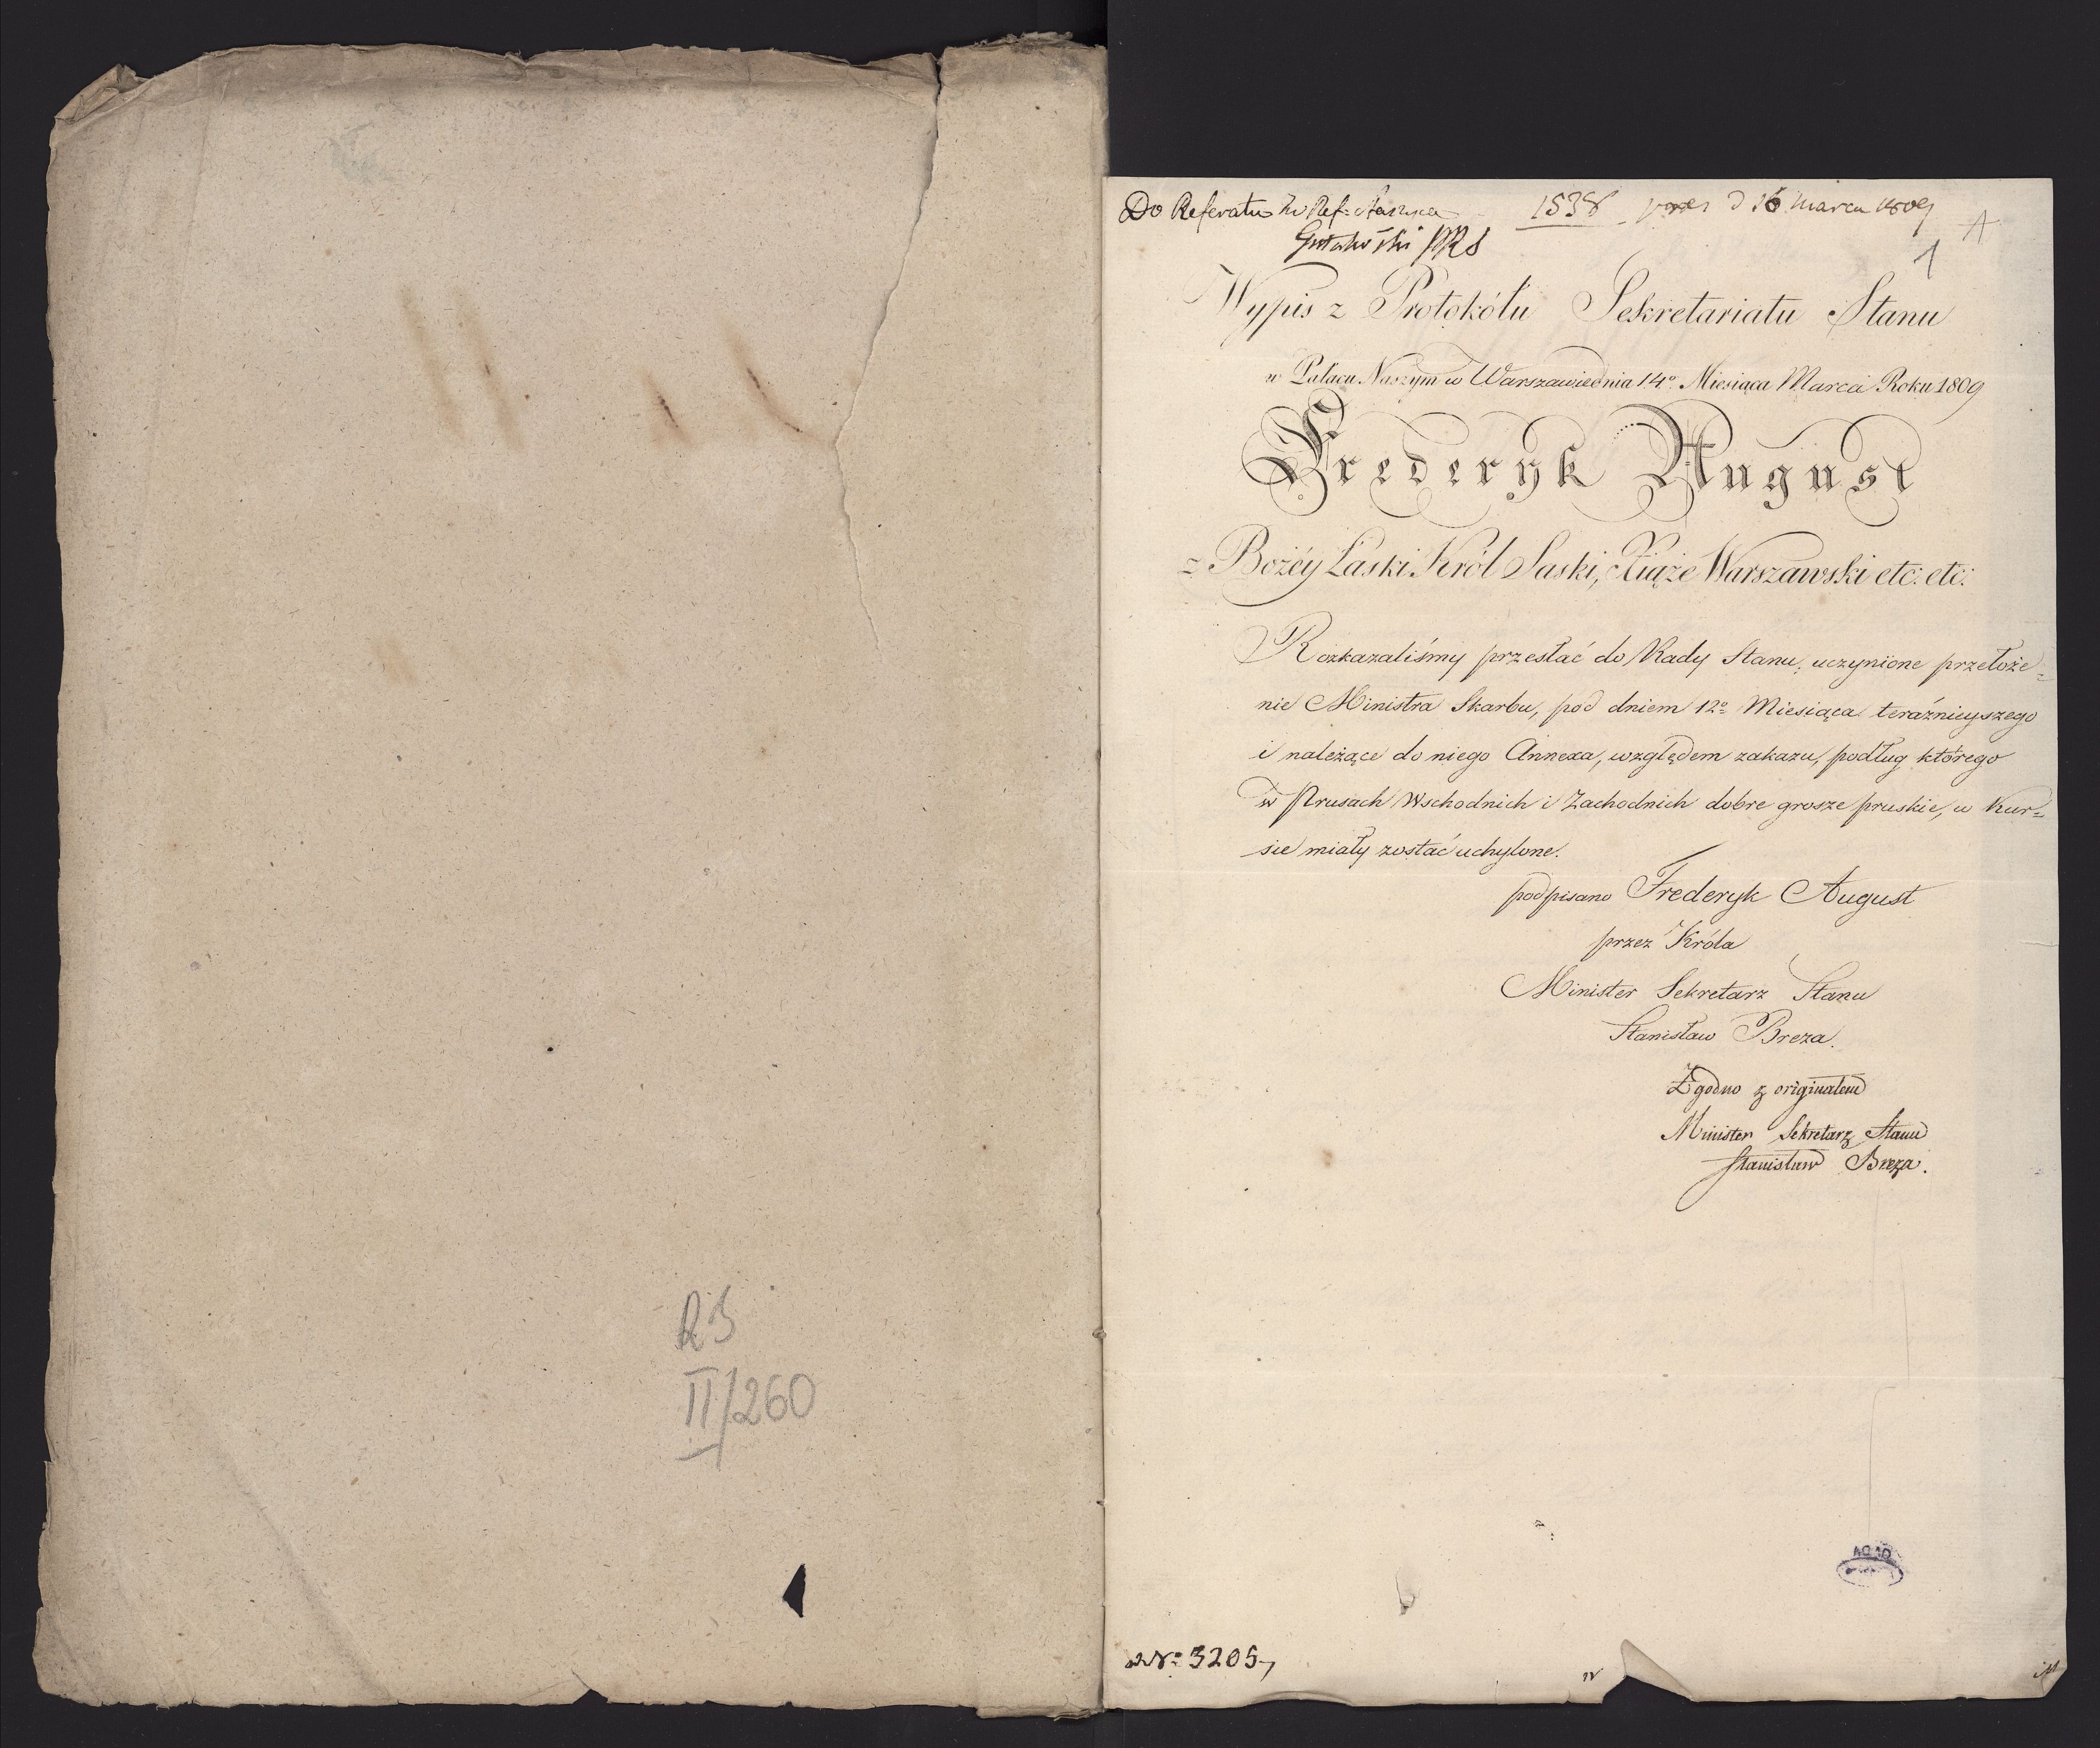 RS
II/260
Do Referatu
1538 d 16 marca 1809
Gutakowski PRS
1
Wypis z Protokółu Sekretariatu Stanu
w Pałacu Naszym w Warszawie dnia 14º Miesiąca Marca Roku 1809
Frederyk August
z Bożéy Łaski Król Saski, Xiąże Warszawski etc: etc:
Rozkazaliśmy przesłać do Rady Stanu, uczynione przełoże=
nie Ministra Skarbu, pod dniem 12º Miesiąca teraźnieyszego
i należące do niego Annexa, względem zakazu, podług którego
w Prusach Wschodnich i Zachodnich dobre grosze pruskie, w Kur=
sie miały zostać uchylone.
podpisano Frederyk August
przez Króla
Minister Sekretarz Stanu
Stanisław Breza.
Zgodno z originałem
Minister Sekretarz Stanu
Stanisław Breza.
AGAD
Nº 3205